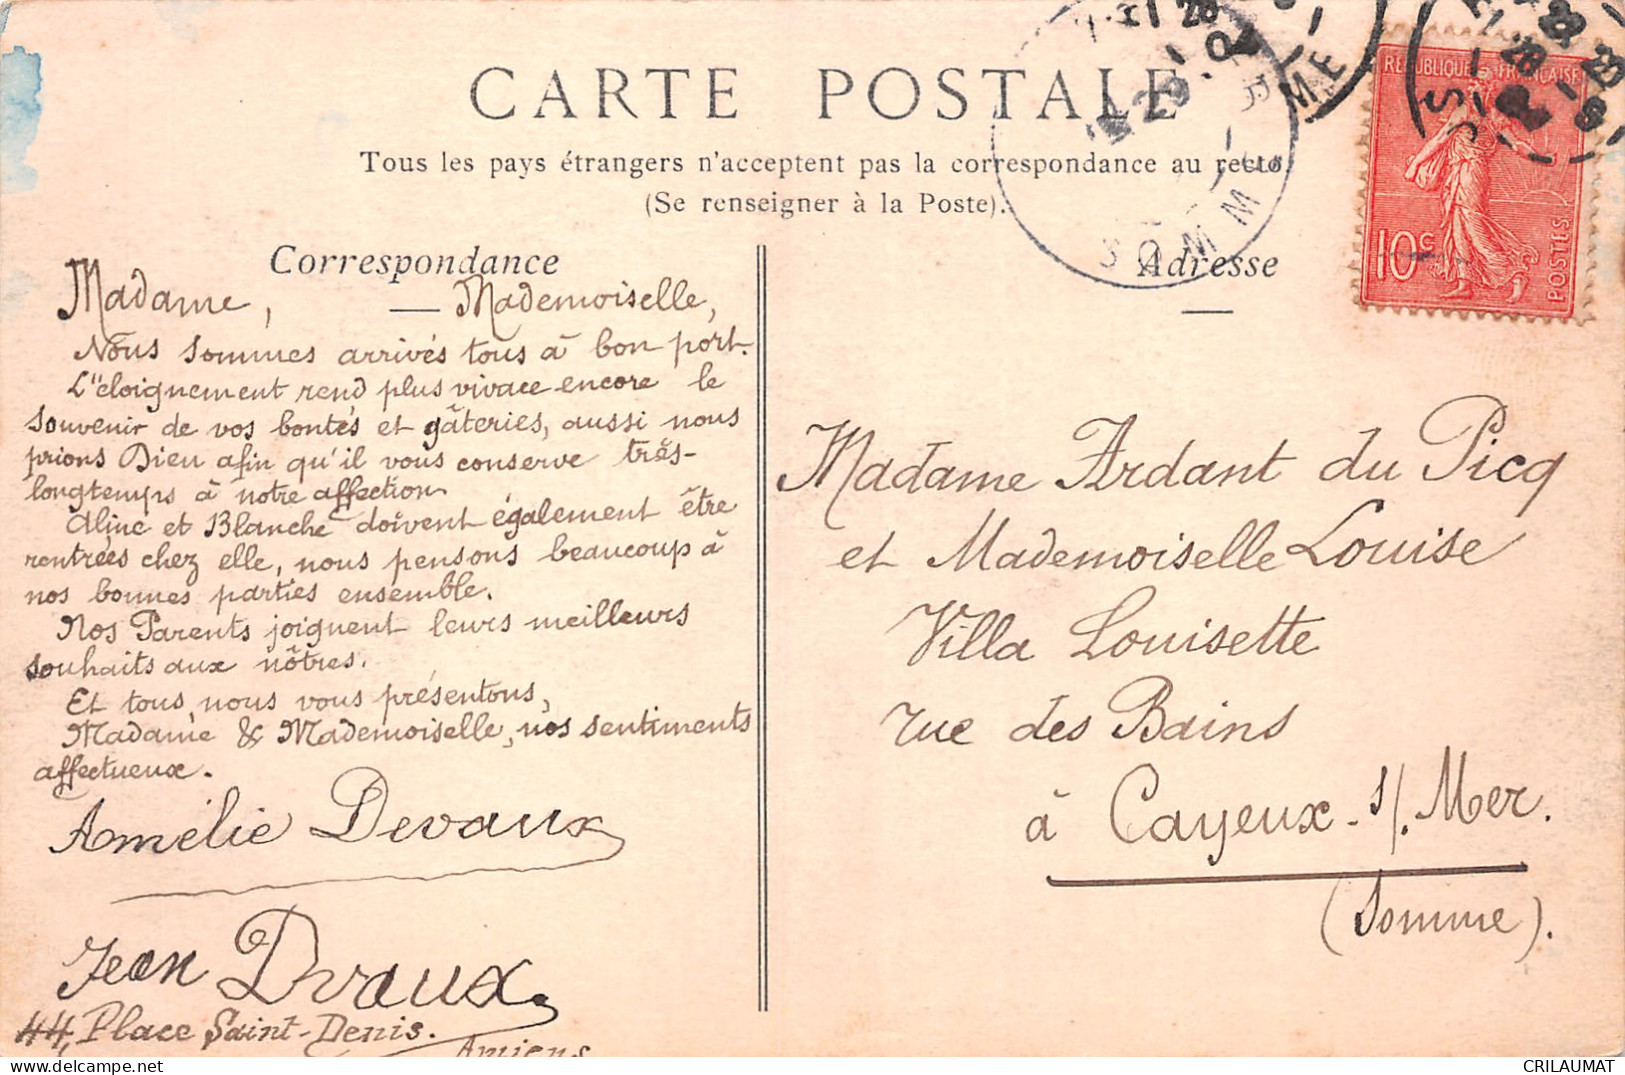 CARTE POSTALE
Tous les pays étrangers n'acceptent pas la correspondance au recto.
(Se renseigner à la Poste).
Correspondance
Madame, — Mademoiselle,
Nous sommes arrivés tous à bon port.
L'éloignement rend plus vivace encore le
souvenir de vos bontés et gâteries, aussi nous
prions Dieu afin qu'il vous conserve très-
longtemps à notre affection
Aline et Blanche doivent également être
rentrées chez elle, nous pensons beaucoup à
nos bonnes parties ensemble.
Nos Parents joignent leurs meilleurs
souhaits aux nôtres.
Et tous nous vous présentons,
Madame & Mademoiselle, nos sentiments
affectueux.
Amélie Devaux
Jean Dvaux.
44, Place Saint-Denis.
Amiens
Adresse
Madame Ardant du Picq
et Mademoiselle Louise
Villa Louisette
rue des Bains
à Cayeux-s/.Mer.
(Somme).
REPUBLIQUE FRANÇAISE
10c
POSTES
SOMME
CRILAUMAT